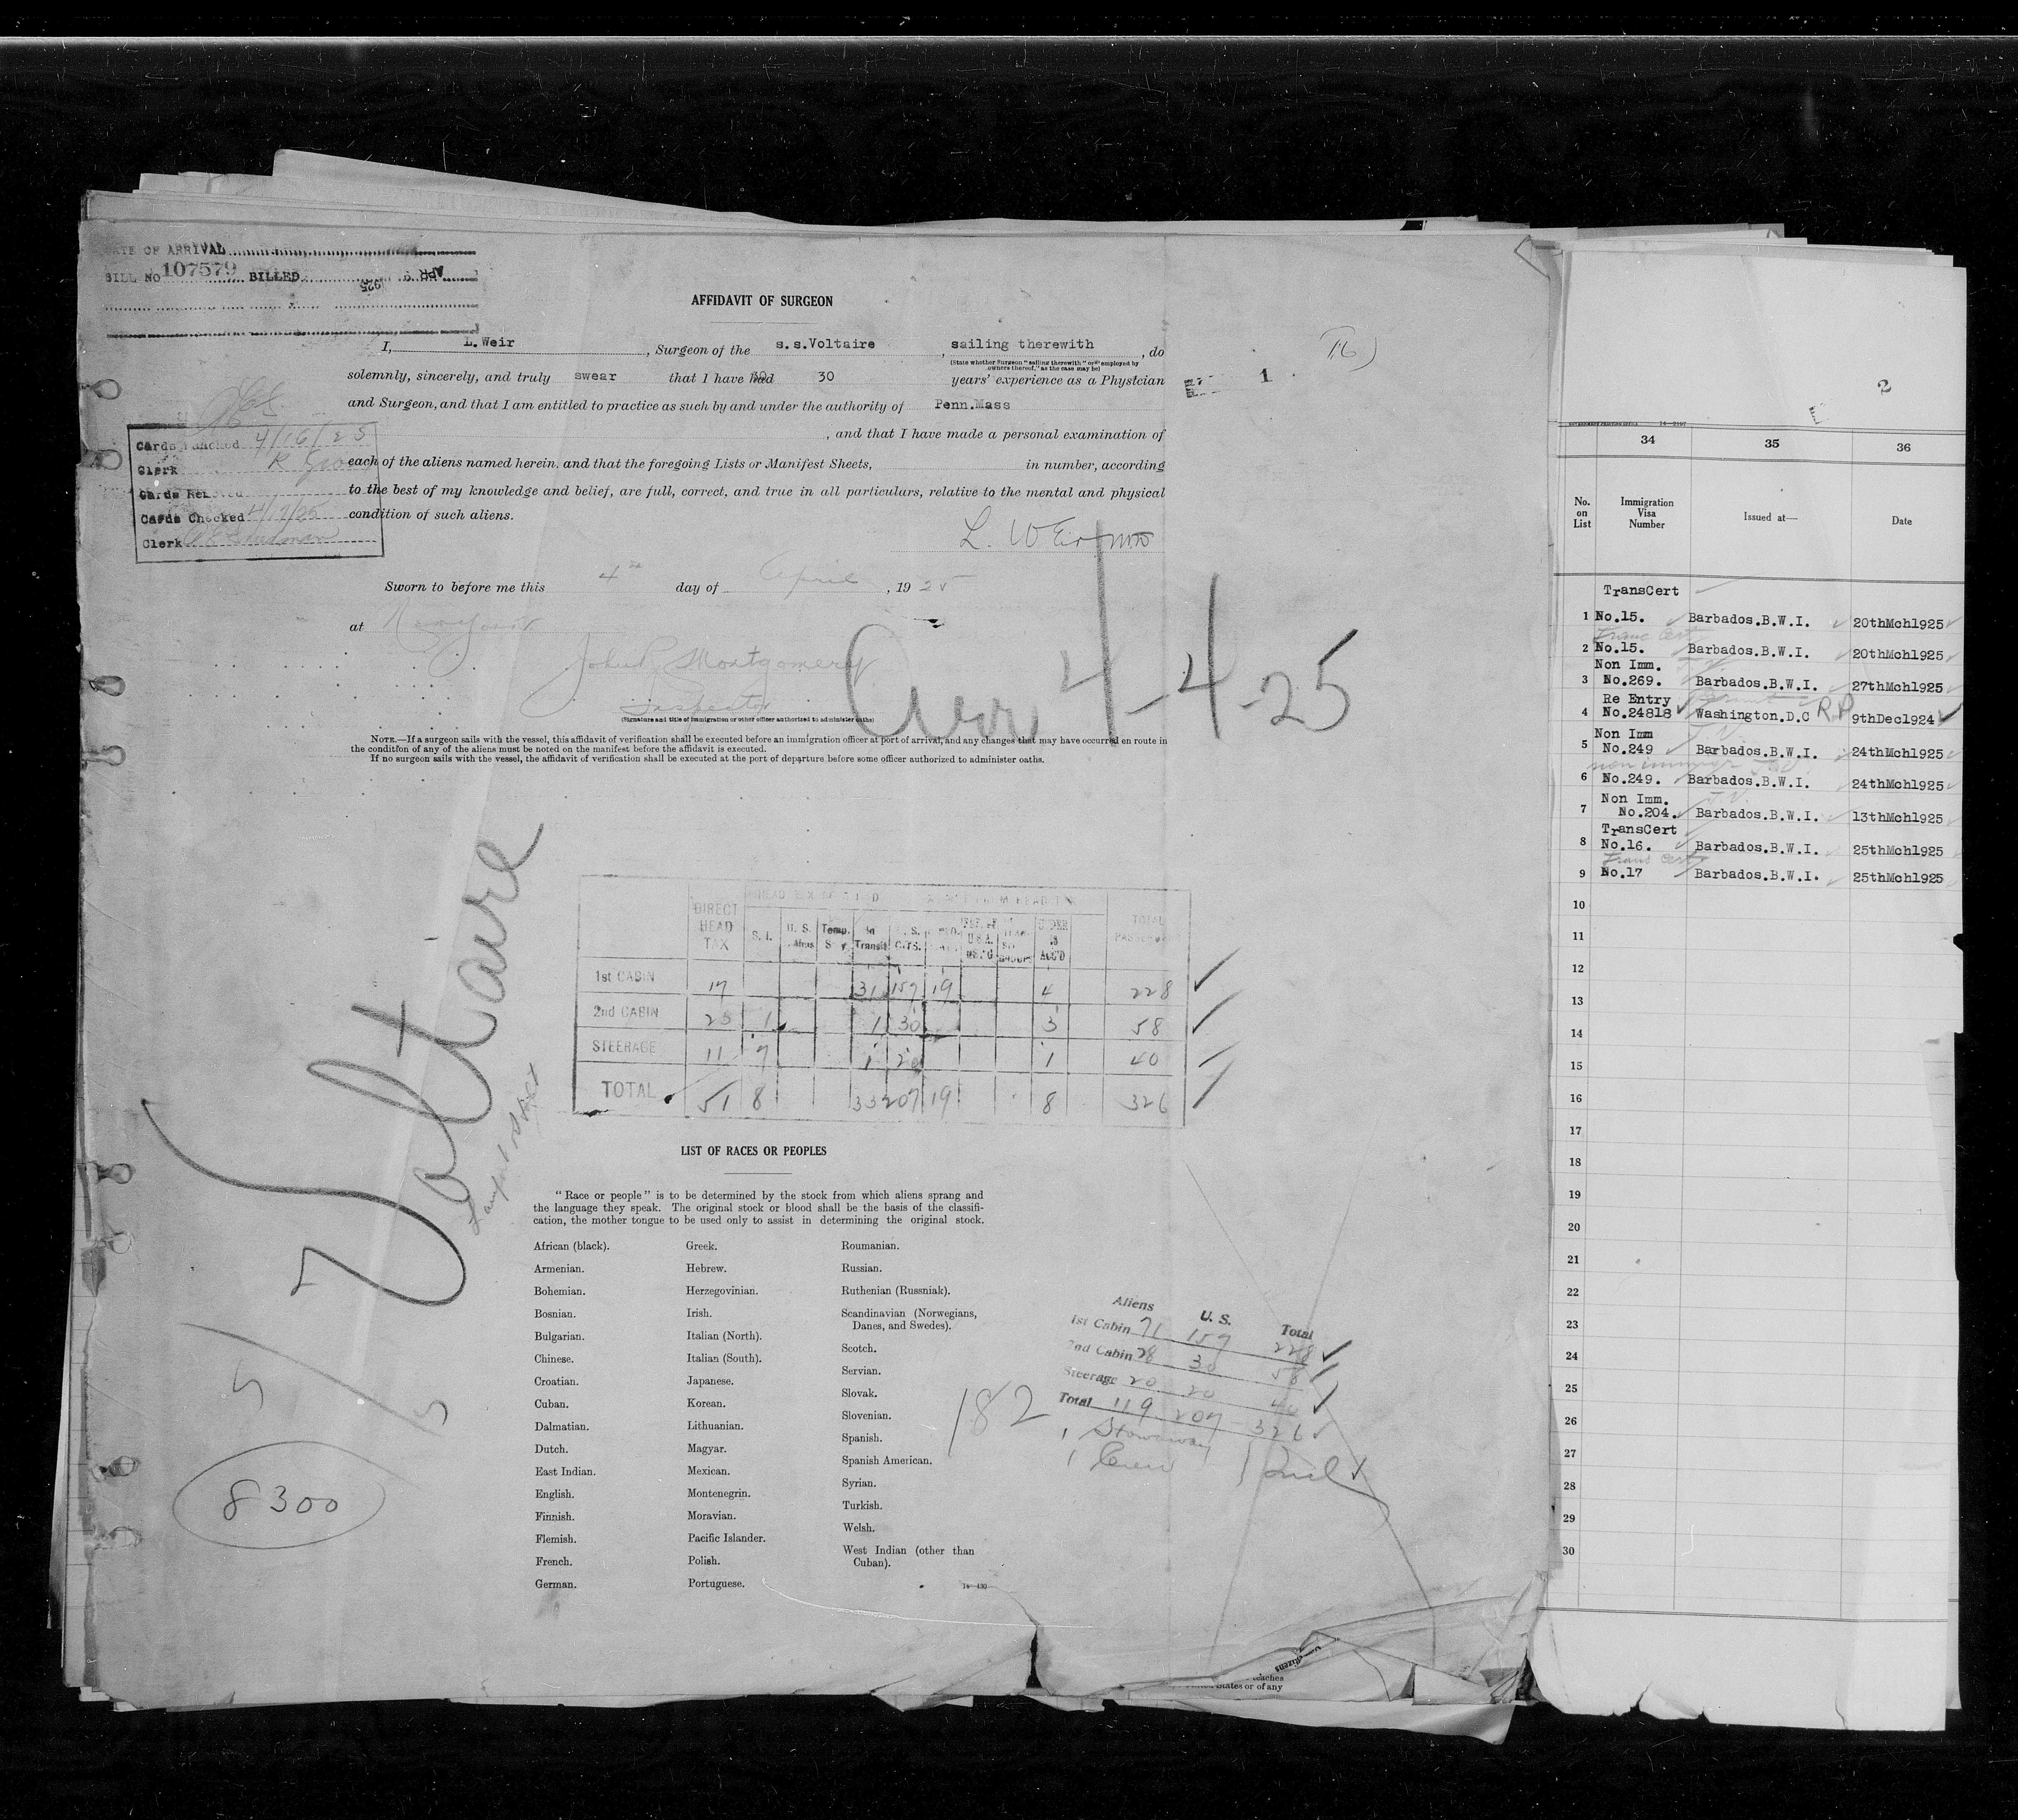 DATE OF ARRIVAL
BILL No 107579 BILLED APR 1925
AFFIDAVIT OF SURGEON
I, L.Weir, Surgeon of the s.s.Voltaire, sailing therewith, do
(State whether Surgeon "sailing therewith" or "employed by
owners thereof," as the case may be)
solemnly, sincerely, and truly swear that I have had 30 years' experience as a Physician
and Surgeon, and that I am entitled to practice as such by and under the authority of Penn.Mass
, and that I have made a personal examination of
each of the aliens named herein, and that the foregoing Lists or Manifest Sheets, in number, according
to the best of my knowledge and belief, are full, correct, and true in all particulars, relative to the mental and physical
condition of such aliens.
L. Weir MD
Sworn to before me this 4th day of April, 1925
at New York
John P. Montgomery
Inspector
(Signature and title of immigration or other officer authorized to administer oaths)
NOTE.—If a surgeon sails with the vessel, this affidavit of verification shall be executed before an immigration officer at port of arrival, and any changes that may have occurred en route in
the condition of any of the aliens must be noted on the manifest before the affidavit is executed.
If no surgeon sails with the vessel, the affidavit of verification shall be executed at the port of departure before some officer authorized to administer oaths.
1
Cards Punched 4/16/25
Clerk
Cards
Cards Checked 4/17/25
Clerk
4-4-25
Voltaire
Lamport & Holt
DIRECT HEAD TAX S.I. U.S. Temp. In Transit CITS. TOTAL
1st CABIN 17 31 157 19 4 228
2nd CABIN 23 1 1 30 3 58
STEERAGE 11 7 1 20 1 40
TOTAL 51 8 33 207 19 8 326
LIST OF RACES OR PEOPLES
"Race or people" is to be determined by the stock from which aliens sprang and
the language they speak. The original stock or blood shall be the basis of the classifi-
cation, the mother tongue to be used only to assist in determining the original stock.
African (black).
Armenian.
Bohemian.
Bosnian.
Bulgarian.
Chinese.
Croatian.
Cuban.
Dalmatian.
Dutch.
East Indian.
English.
Finnish.
Flemish.
French.
German.
Greek.
Hebrew.
Herzegovinian.
Irish.
Italian (North).
Italian (South).
Japanese.
Korean.
Lithuanian.
Magyar.
Mexican.
Montenegrin.
Moravian.
Pacific Islander.
Polish.
Portuguese.
Roumanian.
Russian.
Ruthenian (Russniak).
Scandinavian (Norwegians,
Danes, and Swedes).
Scotch.
Servian.
Slovak.
Slovenian.
Spanish.
Spanish American.
Syrian.
Turkish.
Welsh.
West Indian (other than
Cuban).
Aliens U. S. Total
1st Cabin 71 157 228
2nd Cabin 28 30 58
Steerage 20 20 40
Total 119 207 326
1 Stowaway
1 Crew
182
8300
2
34 35 36
No.
on
List
Immigration
Visa
Number
Issued at—
Date
TransCert
1 No.15. Barbados.B.W.I. 20thMch1925
Trans Cert
2 No.15. Barbados.B.W.I. 20thMch1925
Non Imm.
3 No.269. Barbados.B.W.I. 27thMch1925
Re Entry
4 No.24818 Washington.D.C RP 9thDec1924
Non Imm
5 No.249 Barbados.B.W.I. 24thMch1925
6 No.249. Barbados.B.W.I. 24thMch1925
Non Imm.
7 No.204. Barbados.B.W.I. 13thMch1925
TransCert
8 No.16. Barbados.B.W.I. 25thMch1925
Trans Cert
9 No.17 Barbados.B.W.I. 25thMch1925
10
11
12
13
14
15
16
17
18
19
20
21
22
23
24
25
26
27
28
29
30
States or of any